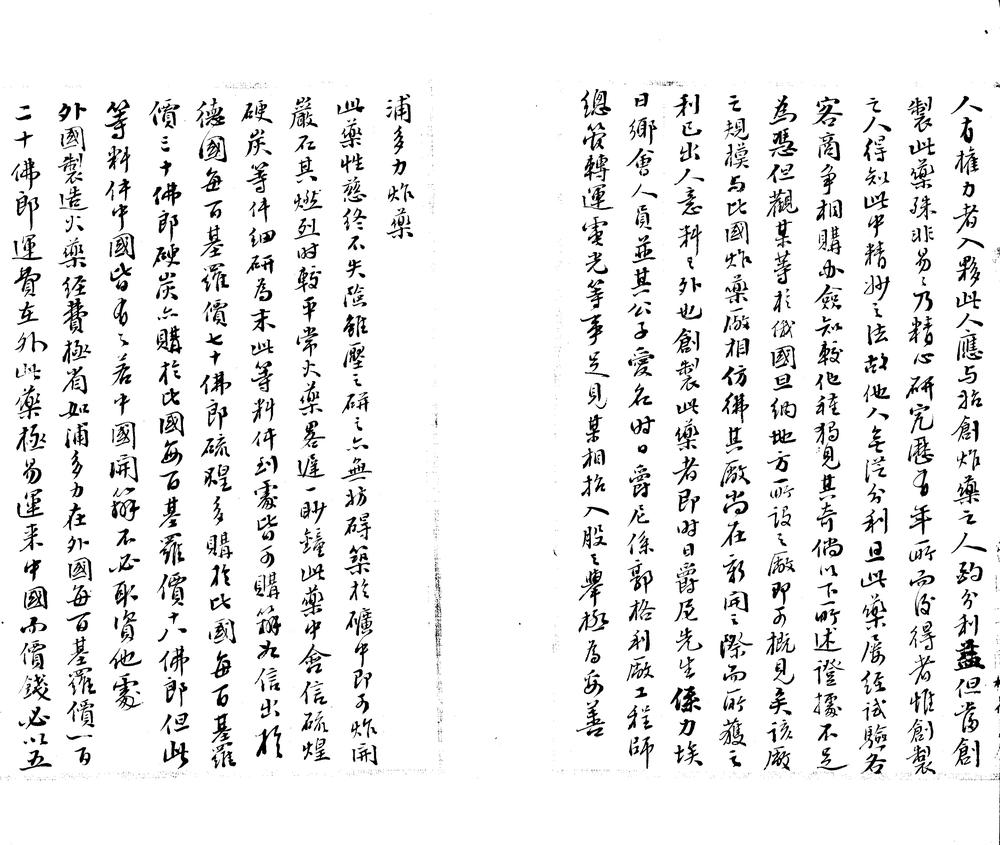 人有權力者入夥此人應与始創炸藥之人酌分利益但當創
製此藥殊非易々乃精心研究歷有年所而後得者惟創製
之人得知此中精妙之法故他人無從分利且此藥屢經試驗各
客商爭相購办僉知較他種獨見其奇倘以下所述證據不足
為憑但觀某等於俄國旦納地方所設之廠即可概見矣該廠
之規模与比國炸藥廠相仿彿其廠尚在新開之際而所獲之
利已出人意料之外也創製此藥者即時日爵尼先生係力埃
日鄉會人員並其公子愛名時日爵尼係郭格利廠工程師
總管轉運電光等事足見某相招入股之舉極為妥善
浦多力炸藥
此藥性慈終不失險雖壓之研之亦無妨碍築於礦中即可炸開
巖石其燃烈时較平常火藥畧遲一眇鐘此藥中含信硫煌
硬炭等件細研為末此等料件到處皆可購辦如信出於
德國每百基羅價七十佛郎硫煌多購於比國每百基羅
價三十佛郎硬炭亦購於比國每百基羅價十八佛郎但此
等料件中國皆有之若中國開辦不必取資他處
外國製造火藥經費極省如浦多力在外國每百基羅價一百
二十佛郎運費在外此藥極易運来中國而價錢必以五